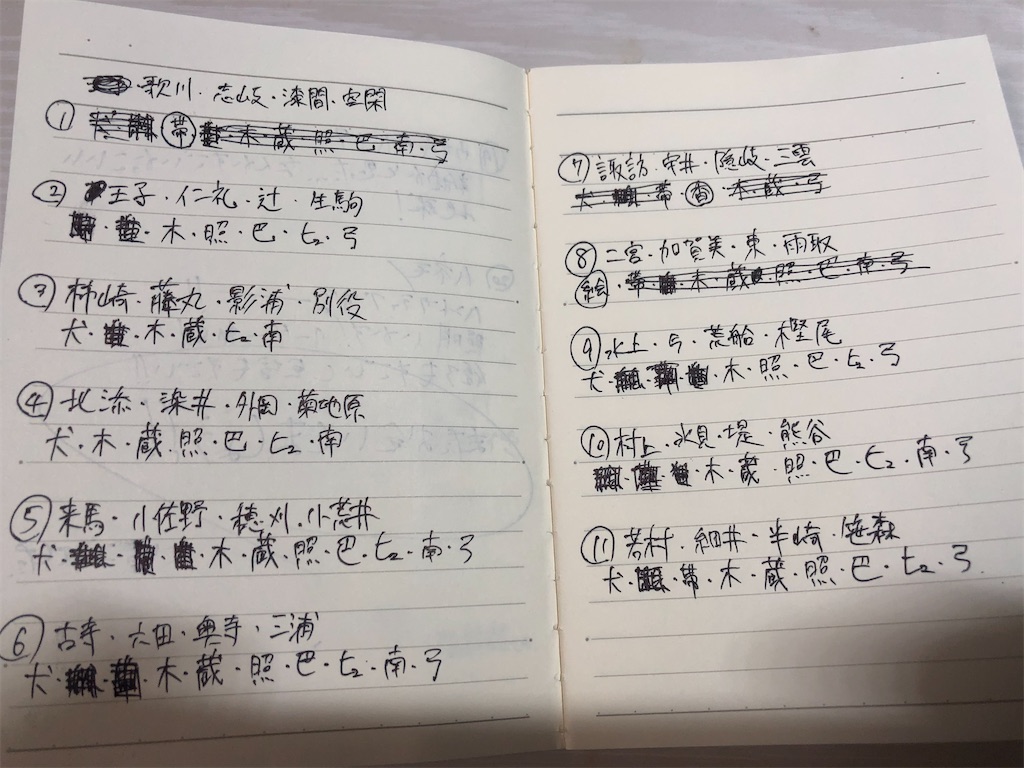 歌川・志岐・漆間・空閑
① 帯 木・蔵・照・巴・南・弓
② 王子・仁礼・辻・生駒
木・照・巴・ヒ2・弓
③ 柿崎・藤丸・影浦・別役
犬・木・蔵・ヒ2・南
④ 北添・染井・外岡・菊地原
犬・木・蔵・照・巴・ヒ2・南
⑤ 来馬・小佐野・穂刈・小荒井
犬・木・蔵・照・巴・ヒ2・南・弓
⑥ 古寺・六田・奥寺・三浦
犬・木・蔵・照・巴・ヒ2・南・弓
⑦ 諏訪・宇井・隠岐・三雲
犬・帯 香・木・蔵・弓
⑧ 二宮・加賀美・東・雨取
絵・帯・木・蔵・照・巴・南・弓
⑨ 水上・弓・荒船・樫尾
犬・木・照・巴・ヒ2・弓
⑩ 村上・氷見・堤・熊谷
木・蔵・照・巴・ヒ2・南・弓
⑪ 若村・細井・半崎・笹森
犬・帯・木・蔵・照・巴・ヒ2・弓